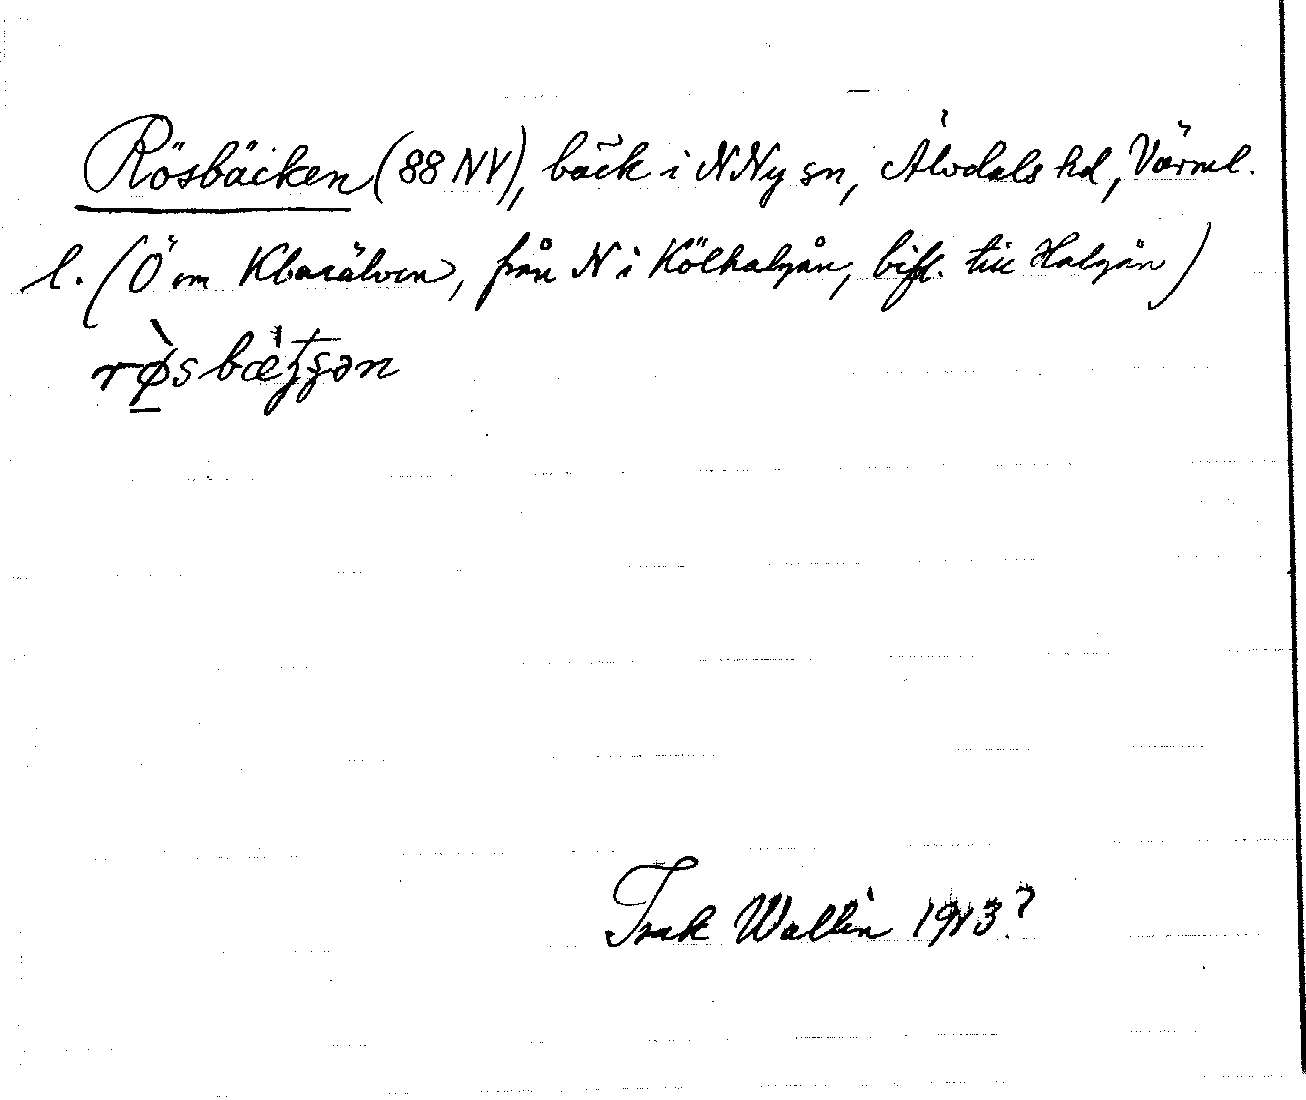 Rösbäcken (88 NV), bäck i NNy sn, Älvdals hd, Värml.
l. (Ö om Klarälven, från N i Kölhalgån, bifl. till Halgån)
rø̱̀sbæ̀ʈʂən
Isak Wallin 1913?